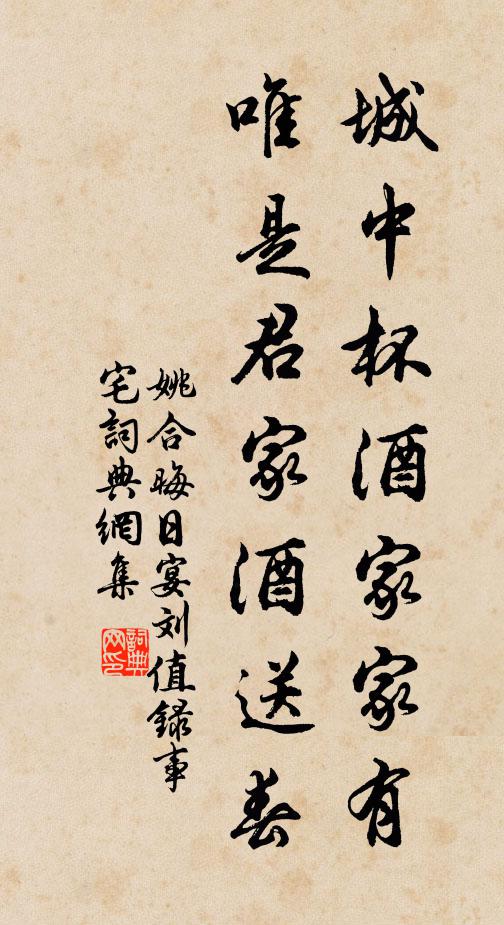 城中杯酒家家有
唯是君家酒送春
姚合晦日宴刘值録事
宅詞典網集
詞典网印